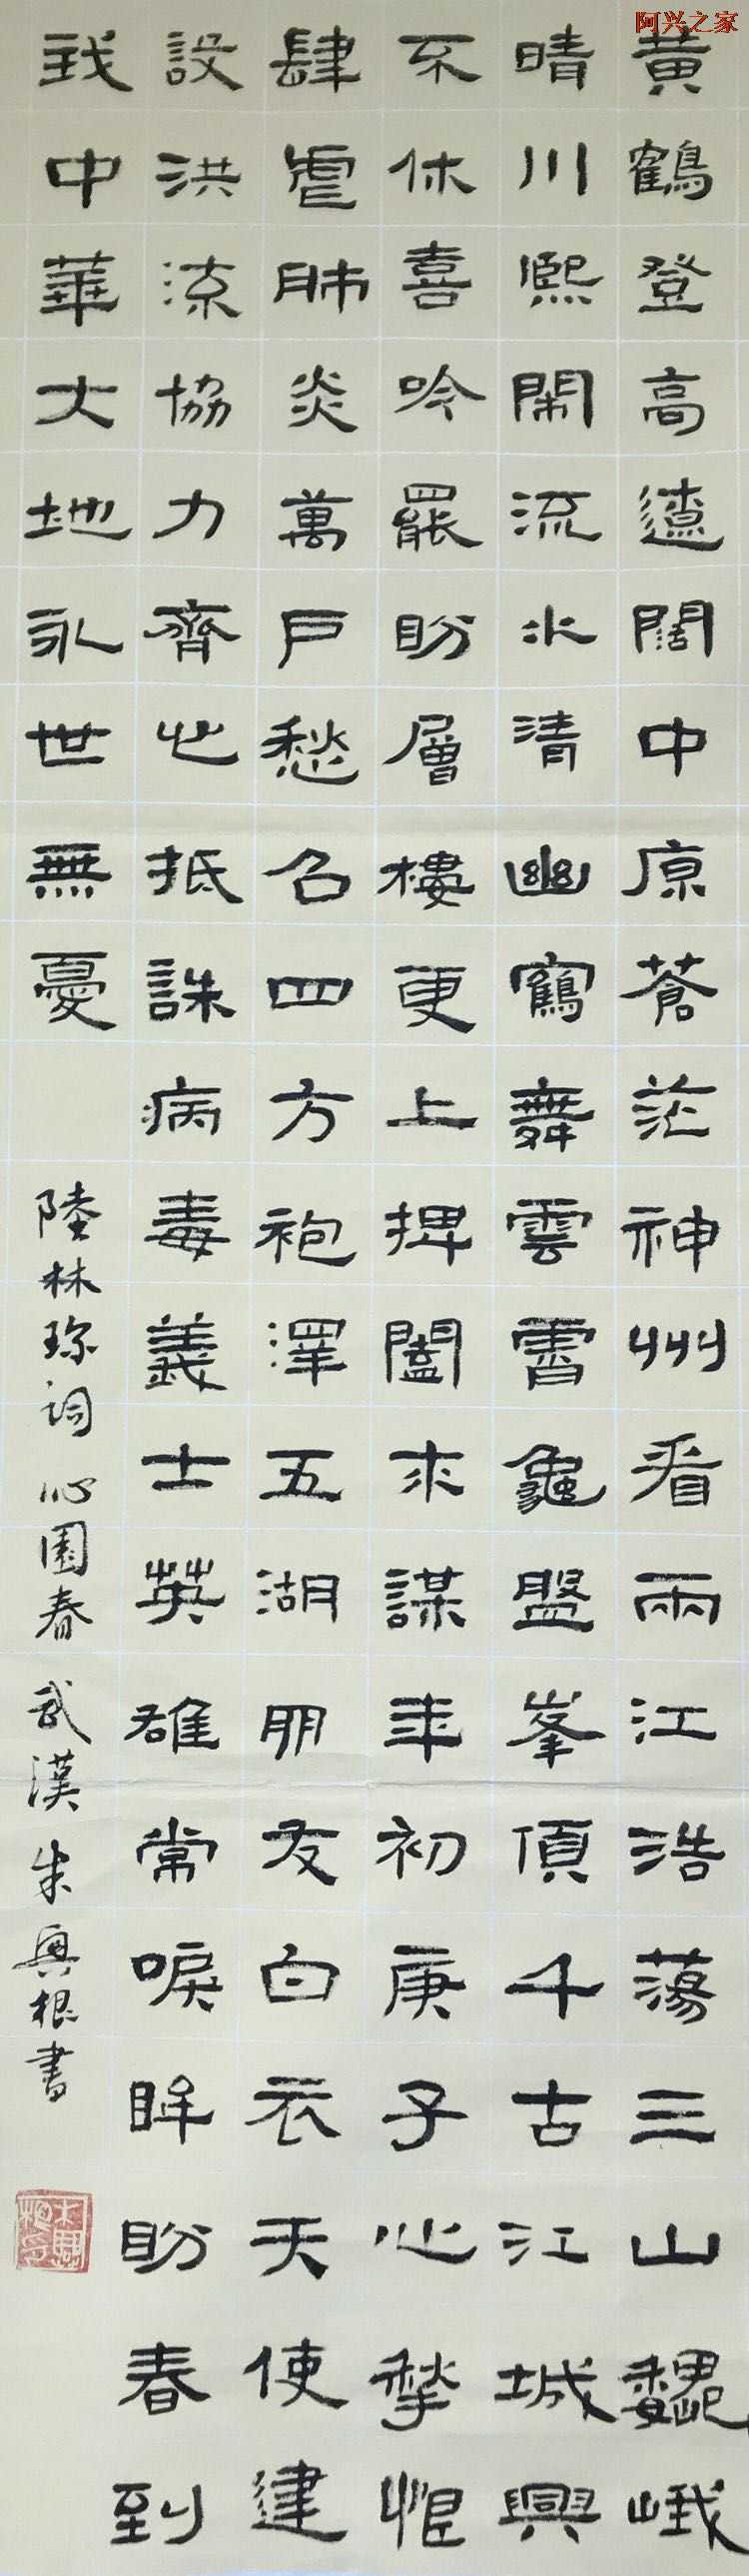 阿兴之家
黃鶴登高遼闊中原蒼茫神州看兩江浩蕩三山巍峨
晴川熙閑流水清幽鶴舞雲霄龜盤峯頂千古江城興
不休喜吟罷盼層樓更上捭闔求謀年初庚子心揫恨
肆虐肺炎萬戶愁召四方袍澤五湖朋友白衣天使建
設洪流協力齊心抵誅病毒義士英雄常唳眸盼春到
我中華大地永世無憂
陸林詞 沁園春 武漢 朱興根書